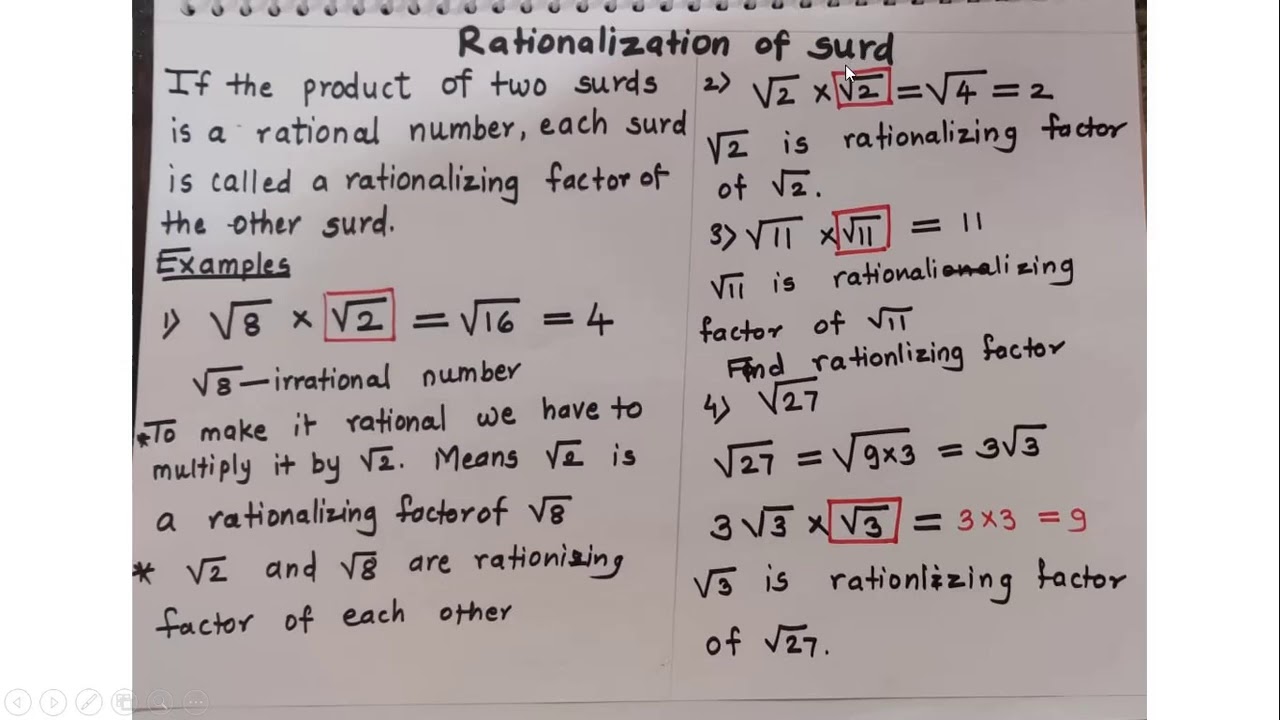 Rationalization of surd
If the product of two surds
is a rational number, each surd
is called a rationalizing factor of
the other surd.
Examples
1) √8 × √2 = √16 = 4
√8 — irrational number
*To make it rational we have to
multiply it by √2. Means √2 is
a rationalizing factor of √8
* √2 and √8 are rationising
factor of each other
2) √2 × √2 = √4 = 2
√2 is rationalizing factor
of √2.
3) √11 × √11 = 11
√11 is rationalionalizing
factor of √11
Find rationlizing factor
4) √27
√27 = √9×3 = 3√3
3√3 × √3 = 3×3 = 9
√3 is rationlizing factor
of √27.